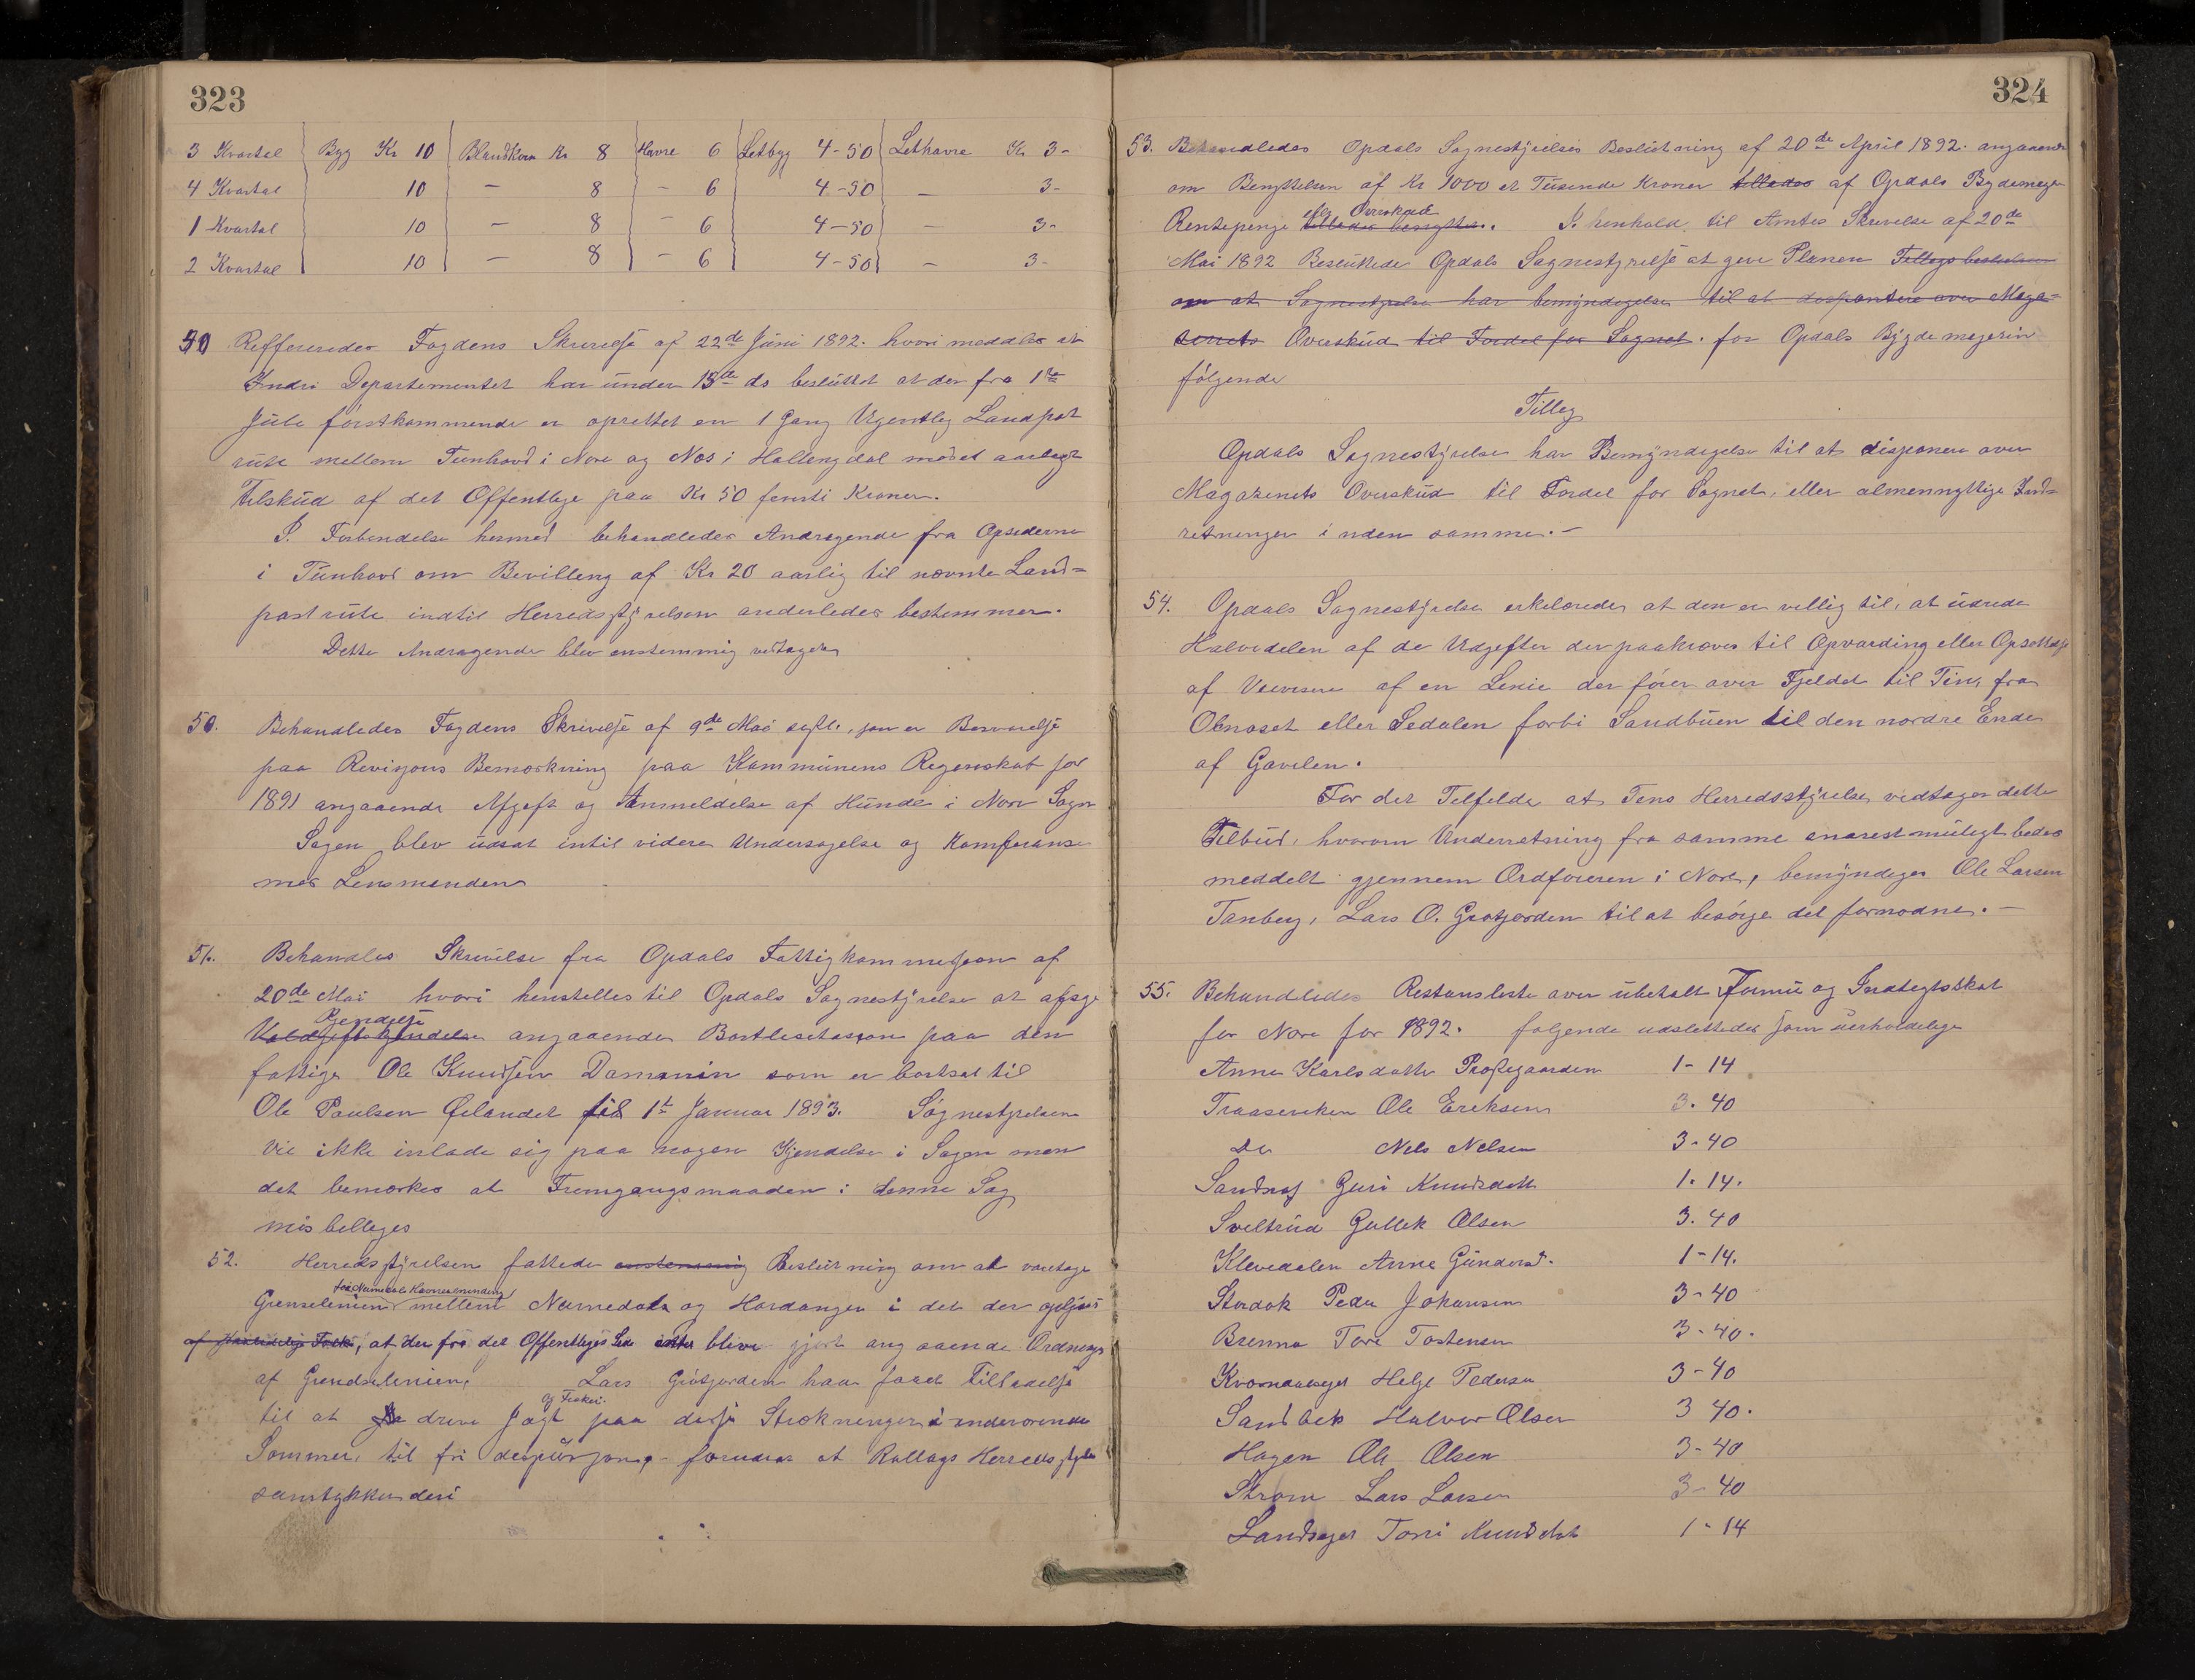 323
3 Kvartal Byg Kr 10 Blandkorn Kr 8 Havre 6 Letbyg 4-50 Lethavre Kr 3-
4 Kvartal 10 — 8 — 6 4-50 — 3-
1 Kvartal 10 — 8 — 6 4-50 — 3-
2 Kvartal 10 — 8 — 6 4-50 — 3-
Reffereredes Fogdens Skrivelse af 22de Juni 1892. hvori meddeles at
Indre Departementet har under 15de ds besluttet at der fra 1ste
Juli førstkommende er oprettet en 1 Gang Ugentlig Landpost
rute mellem Tunhovd i Nore og Næs i Hallingdal med et aarlegt
Tilskud af det Offentlige paa Kr 50 femti Kroner.
I. Forbindelse hermed behandledes Andragende fra Opsederne
i Tunhovd om Bevilling af Kr 20 aarlig til nævnte Land=
postrute indtil Herredsstyrelsen anderledes bestemmer.
Dette Andragende blev enstemmig vedtagen
50. Behandledes Fogdens Skrivelse af 9de Mai sidstl., som er Besvarelse
paa Revisjons Bemærkning paa Kommunens Regnskab for
1891 angaaende Afgift og Anmeldelse af Hunde i Nore Sogn
Sagen blev udsat intil videre Undersøgelse og Konferanse
med Lensmanden
51. Behandles Skrivelse fra Opdals Fattigkommission af
20de Mai hvori henstilles til Opdals Sognestyrelse at afsige
Kjendelse
angaaende Bortlisitasjon paa den
fattige Ole Knudsen Damanin som er bortsat til
Ole Paulsen Øilandet til 1st Januar 1893. Sognestyrelsen
vil ikke inlade sig paa nogen Kjendelse i Sagen men
det bemærkes at Fremgangsmaaden i denne Sag
misbilliges
52. Herredsstyrelsen fattede enstemmig Beslutning om at varetage
Grenselinien mellem Numedals og Hardanger i det der oplyses
at der fra det Offentliges Side intet blive gjort angaaende Ordnings
af Grendselinien, Lars Grøtjorden har faaet Tilladelse
og Fiskeri.
til at drive Jagt paa disse Strækninger i inderværende
Sommer, til fri disposisjon, forudsat at Rollags Herredsstyrelse
samtykker deri
324
53. Behandledes Opdals Sognestyrelses Beslutning af 20de April 1892. angaaende
om Benyttelsen af Kr 1000 et Tusende Kroner tillades af Opdals Bygdemagasin
eller Overskud
Rentepenge tillades benyttet. I. henhold til Amtes Skrivelse af 20de
Mai 1892 Besluttede Opdals Sognestyrelse at give Planen Tillægs beslutning
om at Sognestyrelse har bemyndigelse til at disponere over Maga=
sinets Overskud til Fordel for Sognet. for Opdals Bygdemagasin
følgende
Tillæg
Opdals Sognestyrelse har Bemyndigelse til at disponere over
Magasinets Overskud til Fordel for Sognet, eller almennyttige Ind=
retninger inden samme.—
54. Opdals Sognestyrelse erkelærede at den er villig til, at udrede
Halvedelen af de Udgifter der paakræves til Opvarding eller Opsettelse
af Veivisere af en Linie der fører over Fjeldet til Tin, fra
Olnaset eller Sedalen forbi Sandbuen til den nordre Ende
af Gavelen.
For det Tilfelde at Tins Herredsstyrelse vedtager dette
Tilbud, hvorom Underretning fra samme snarest muligt bedes
meddelt gjennem Ordføreren i Nore, bemyndiges Ole Larsen
Tanberg, Lars O. Grøtjorden til at besørge det fornødne.—
55. Behandledes Restansliste over ubetalt Formu og Indtegtsskat
for Nore for 1892. følgende udslettedes som uerholdelige
Anne Karlsdatter Prestgaarden 1-14
Traaseviken Ole Eriksen 3.40
Do Nels Nelsen 3-40
Guri Knudsdatt 1.14.
Sveltrud Gullik Olsen 3.40
Klevedalen Anne Gundersd. 1-14.
Stordok Peder Johansen 3-40
Brenna Tore Tostensen 3-40.
Helge Pedersen 3-40
Sandbek Halvor Olsen 3 40.
Hagen Ole Olsen 3-40
Strøm Lars Larsen 3-40
Landsager Torri Knudsdat 1-14